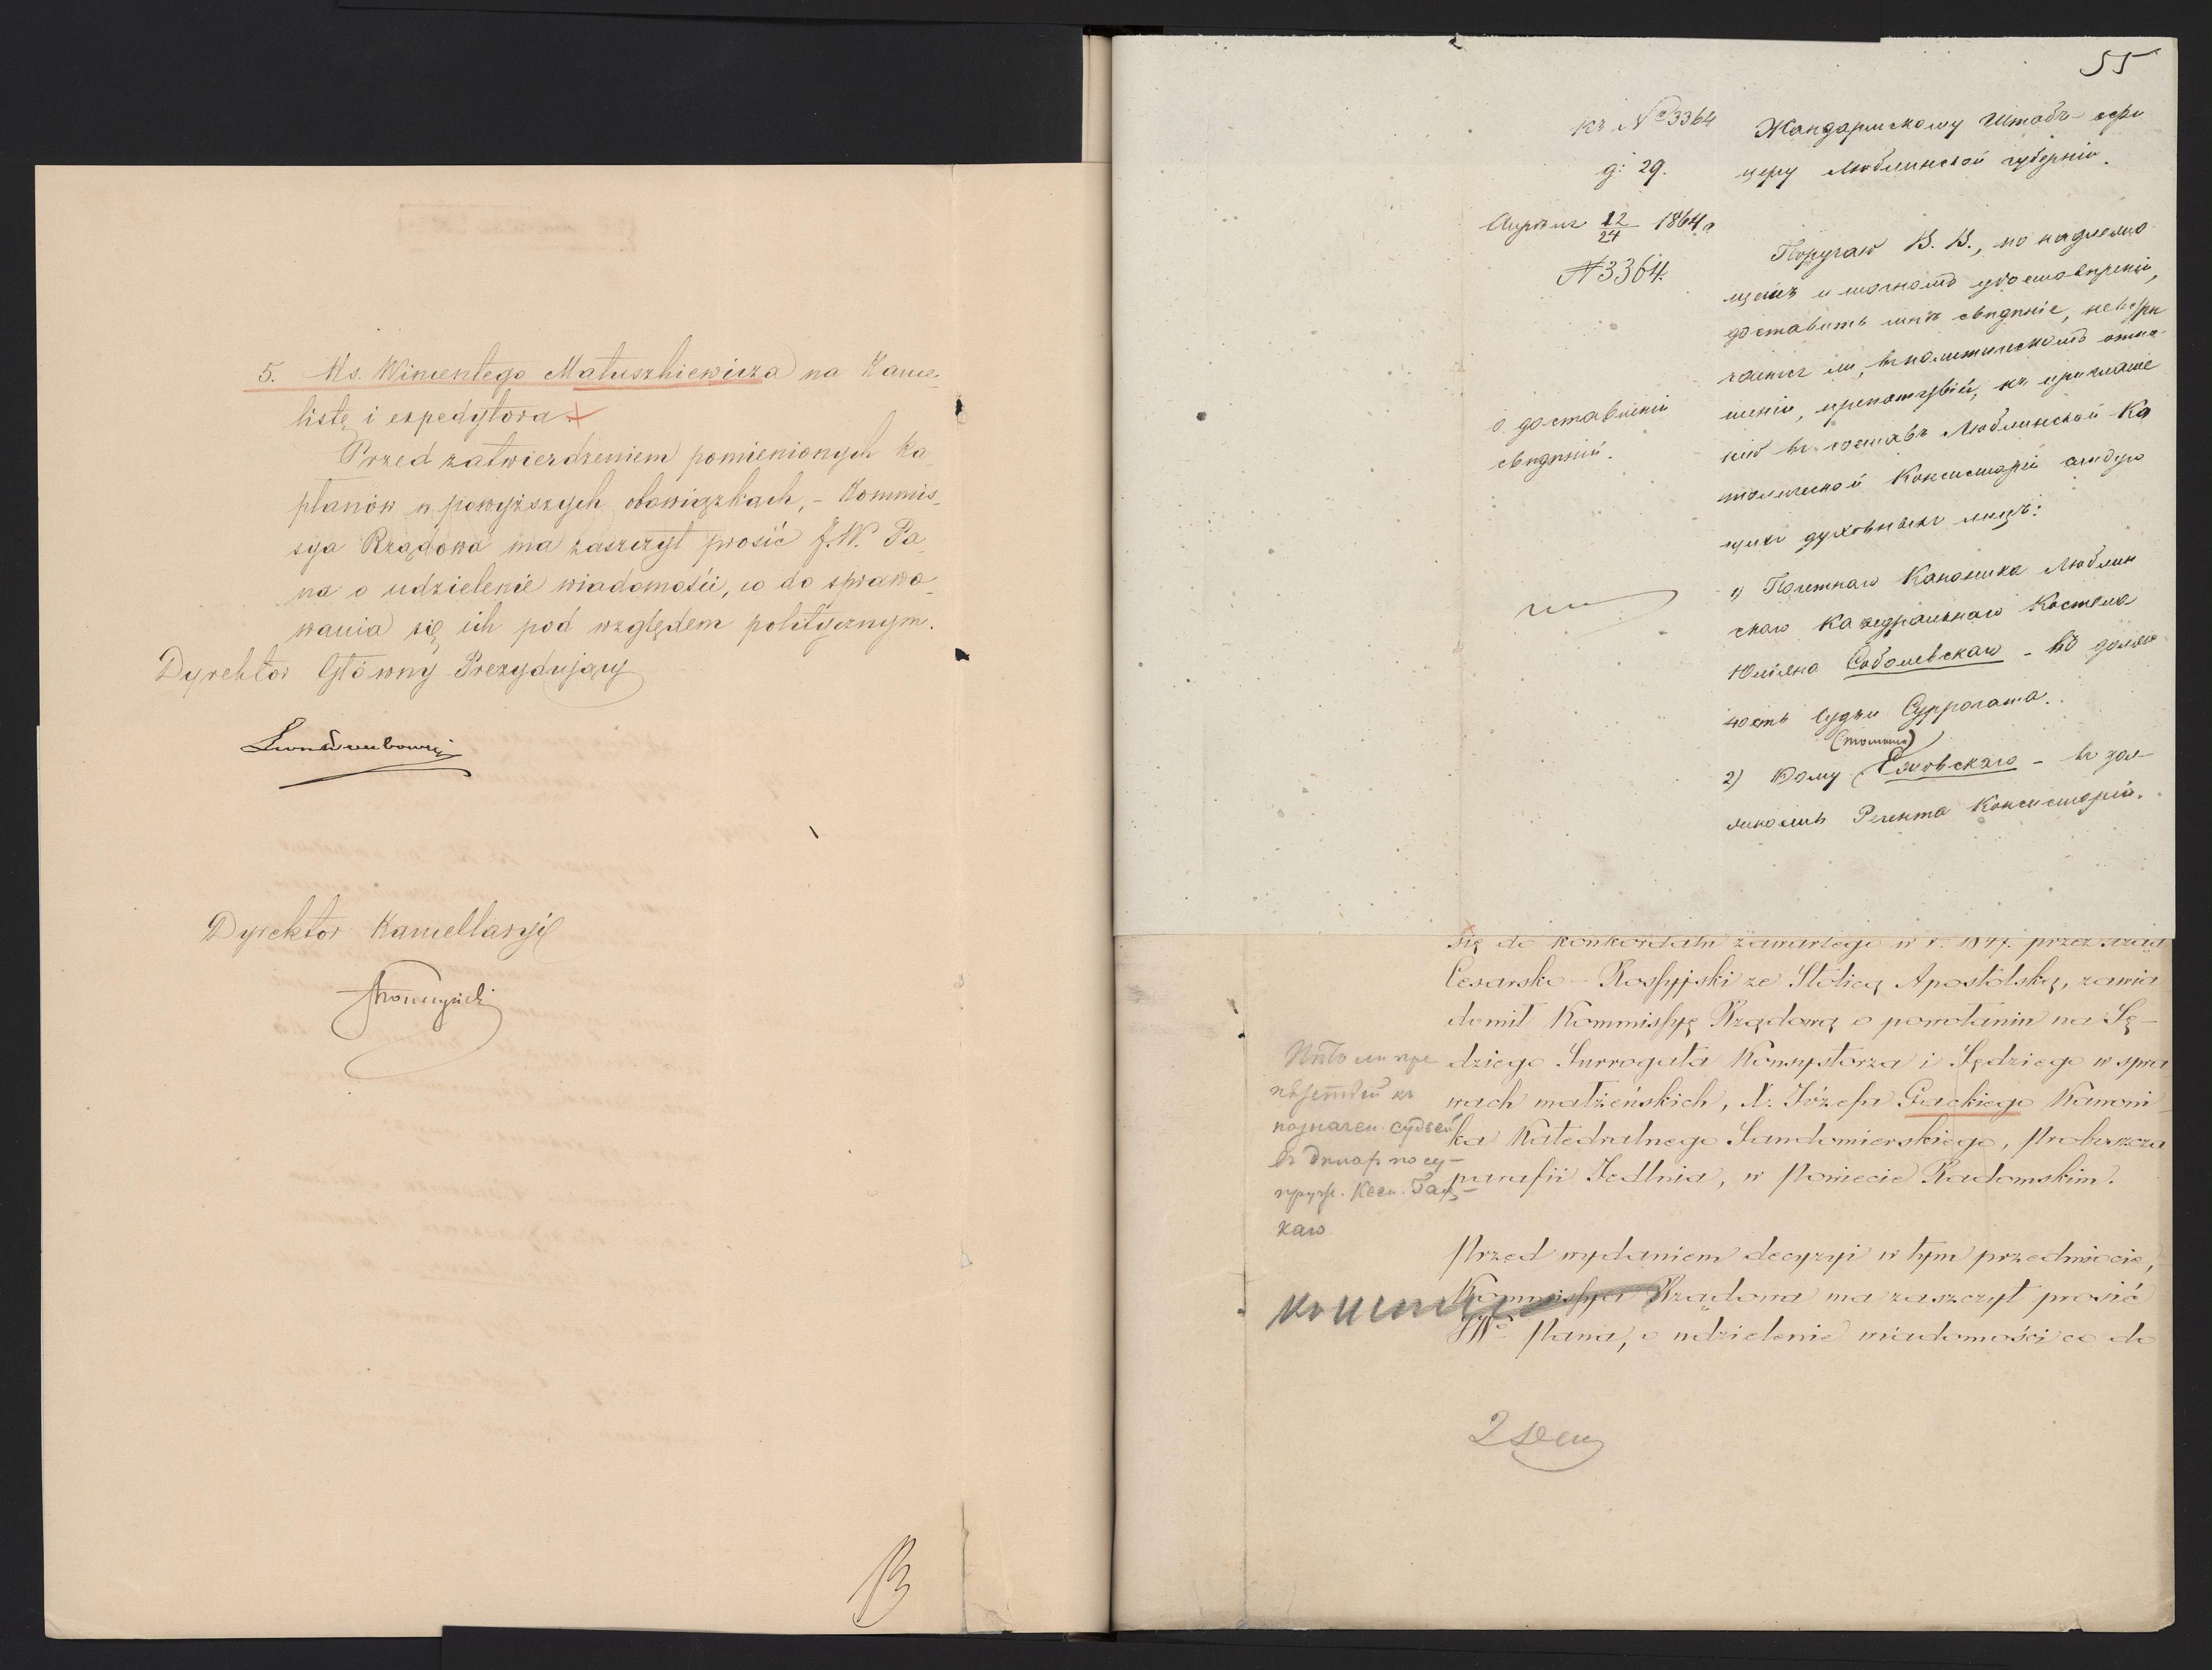 5. Ks. Wincentego Matuszkiewicza na Kance-
listę i expedytora.
Przed zatwierdzeniem pomienionych ka-
płanów w powyższych obowiązkach, - Kommis-
sya Rządowa ma zaszczyt prosić J.W. Pa-
na o udzielenie wiadomości, co do sprawo-
wania się ich pod względem politycznym.
Dyrektor Główny Prezydujący
Dyrektor Kancellaryi
55
Къ № 3364
д: 29.
Апрѣля 12/24 1864 г
№ 3364.
О доставленіи
свѣдѣній.
Жандармскому Штабъ-офи
церу Люблинской губерніи.
Поручаю В. В., по надлежа
щемъ и точномъ удостовѣреніи,
доставить мнѣ свѣдѣніе, невстрѣ
чается ли, въ политическомъ отно-
шеніи, препятствій, къ приглаше
нію въ составъ Люблинской Ка
толической Консисторіи слѣдую
щихъ духовныхъ лицъ:
1) Почетнаго Каноника Люблин
скаго Каѳедральнаго Костела
Юліяна Соболевскаго - въ долж
ность Судьи Суррогата.
2)
- въ дол-
жность Регента Консисторіи.
się do konkordatu zawartego w r. 1847. przez Rząd
Cesarsko - Rossyjski ze Stolicą Apostolską, zawia
domił Kommissyę Rządową o powołaniu na Sę-
dziego Surrogata Konsystorza i Sędziego w spra
wach małżeńskich, X. Józefa Gackiego Kanoni-
ka Katedralnego Sandomierskiego, Proboszcza
parafii Jedlnia, w Powiecie Radomskim.
Нѣтъ ли пре
пятствій къ
назначен. судьей
въ дѣлах по су-
пруж. Ксен. Гац-
каго
Przed wydaniem decyzyi w tym przedmiocie,
Kommissya Rządowa ma zaszczyt prosić
JWo Pana, o udzielenie wiadomości co do